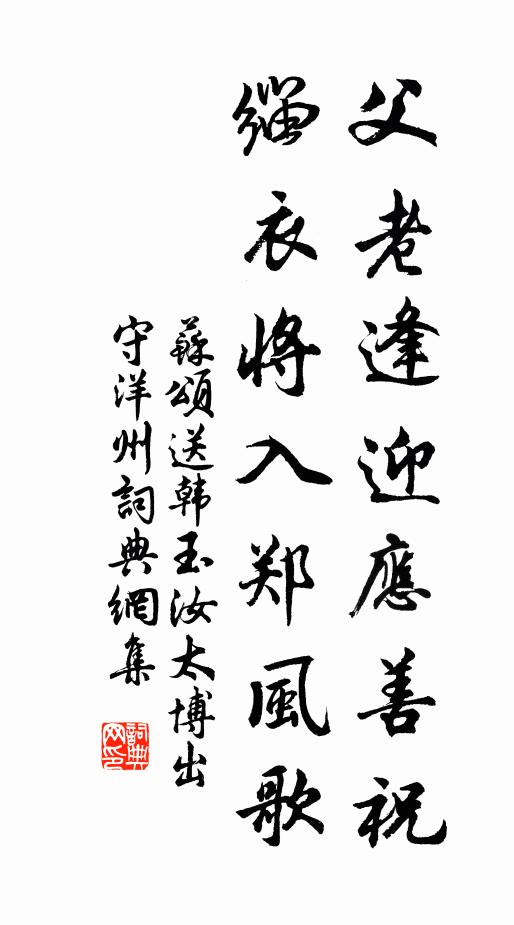 父老逢迎應善祝
緇衣將入郑風歌
蘇頌送韩玉汝太博出
守洋州詞典網集
詞典
网印